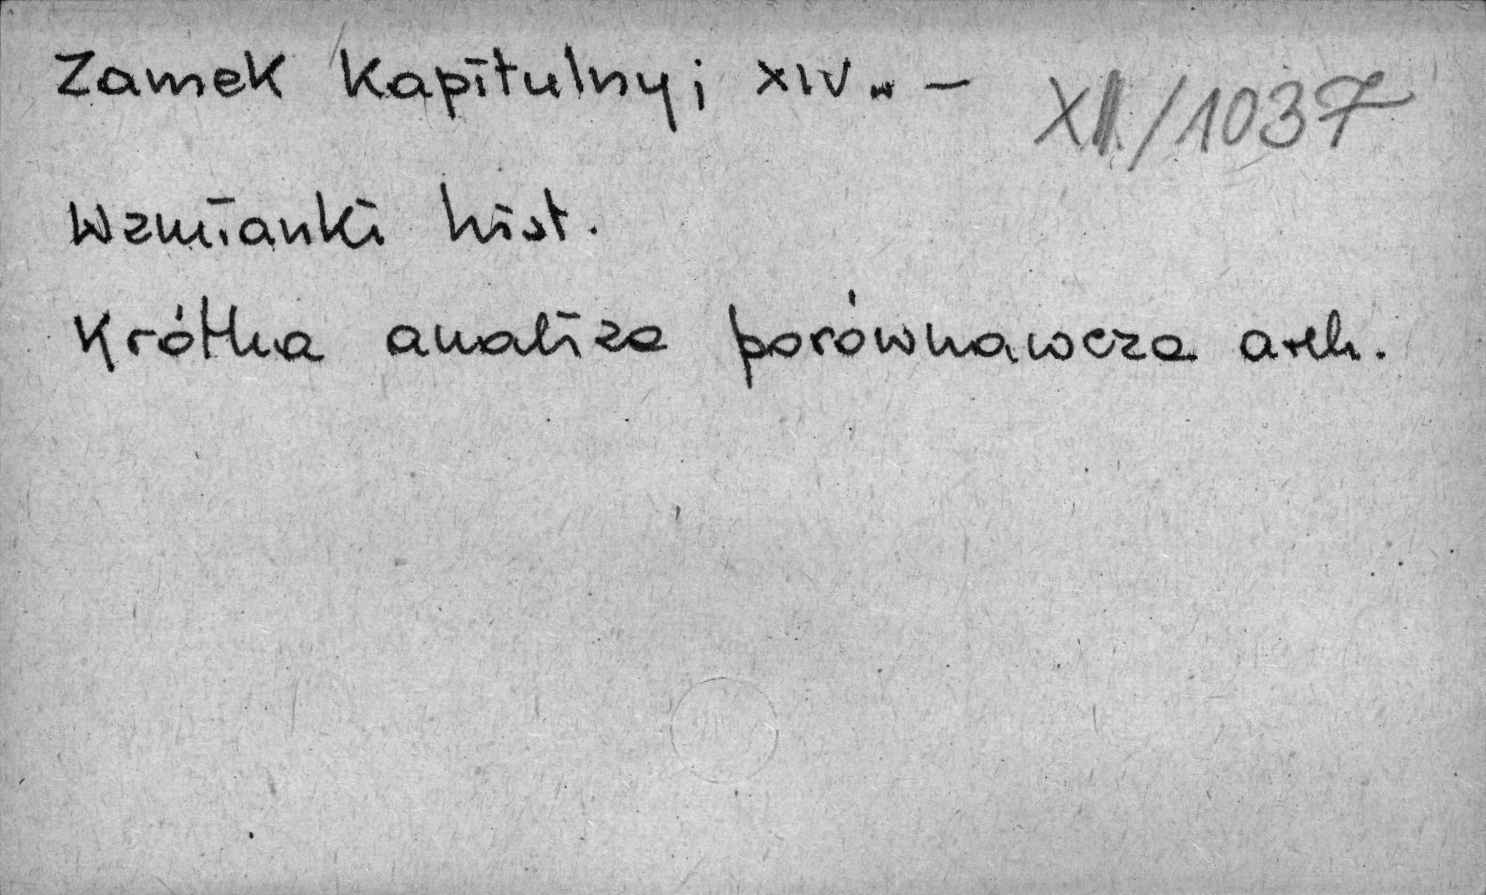 Zamek Kapitulny; XIV w. – XI/1037
Wzmianki hist.
Krótka analiza porównawcza arch.